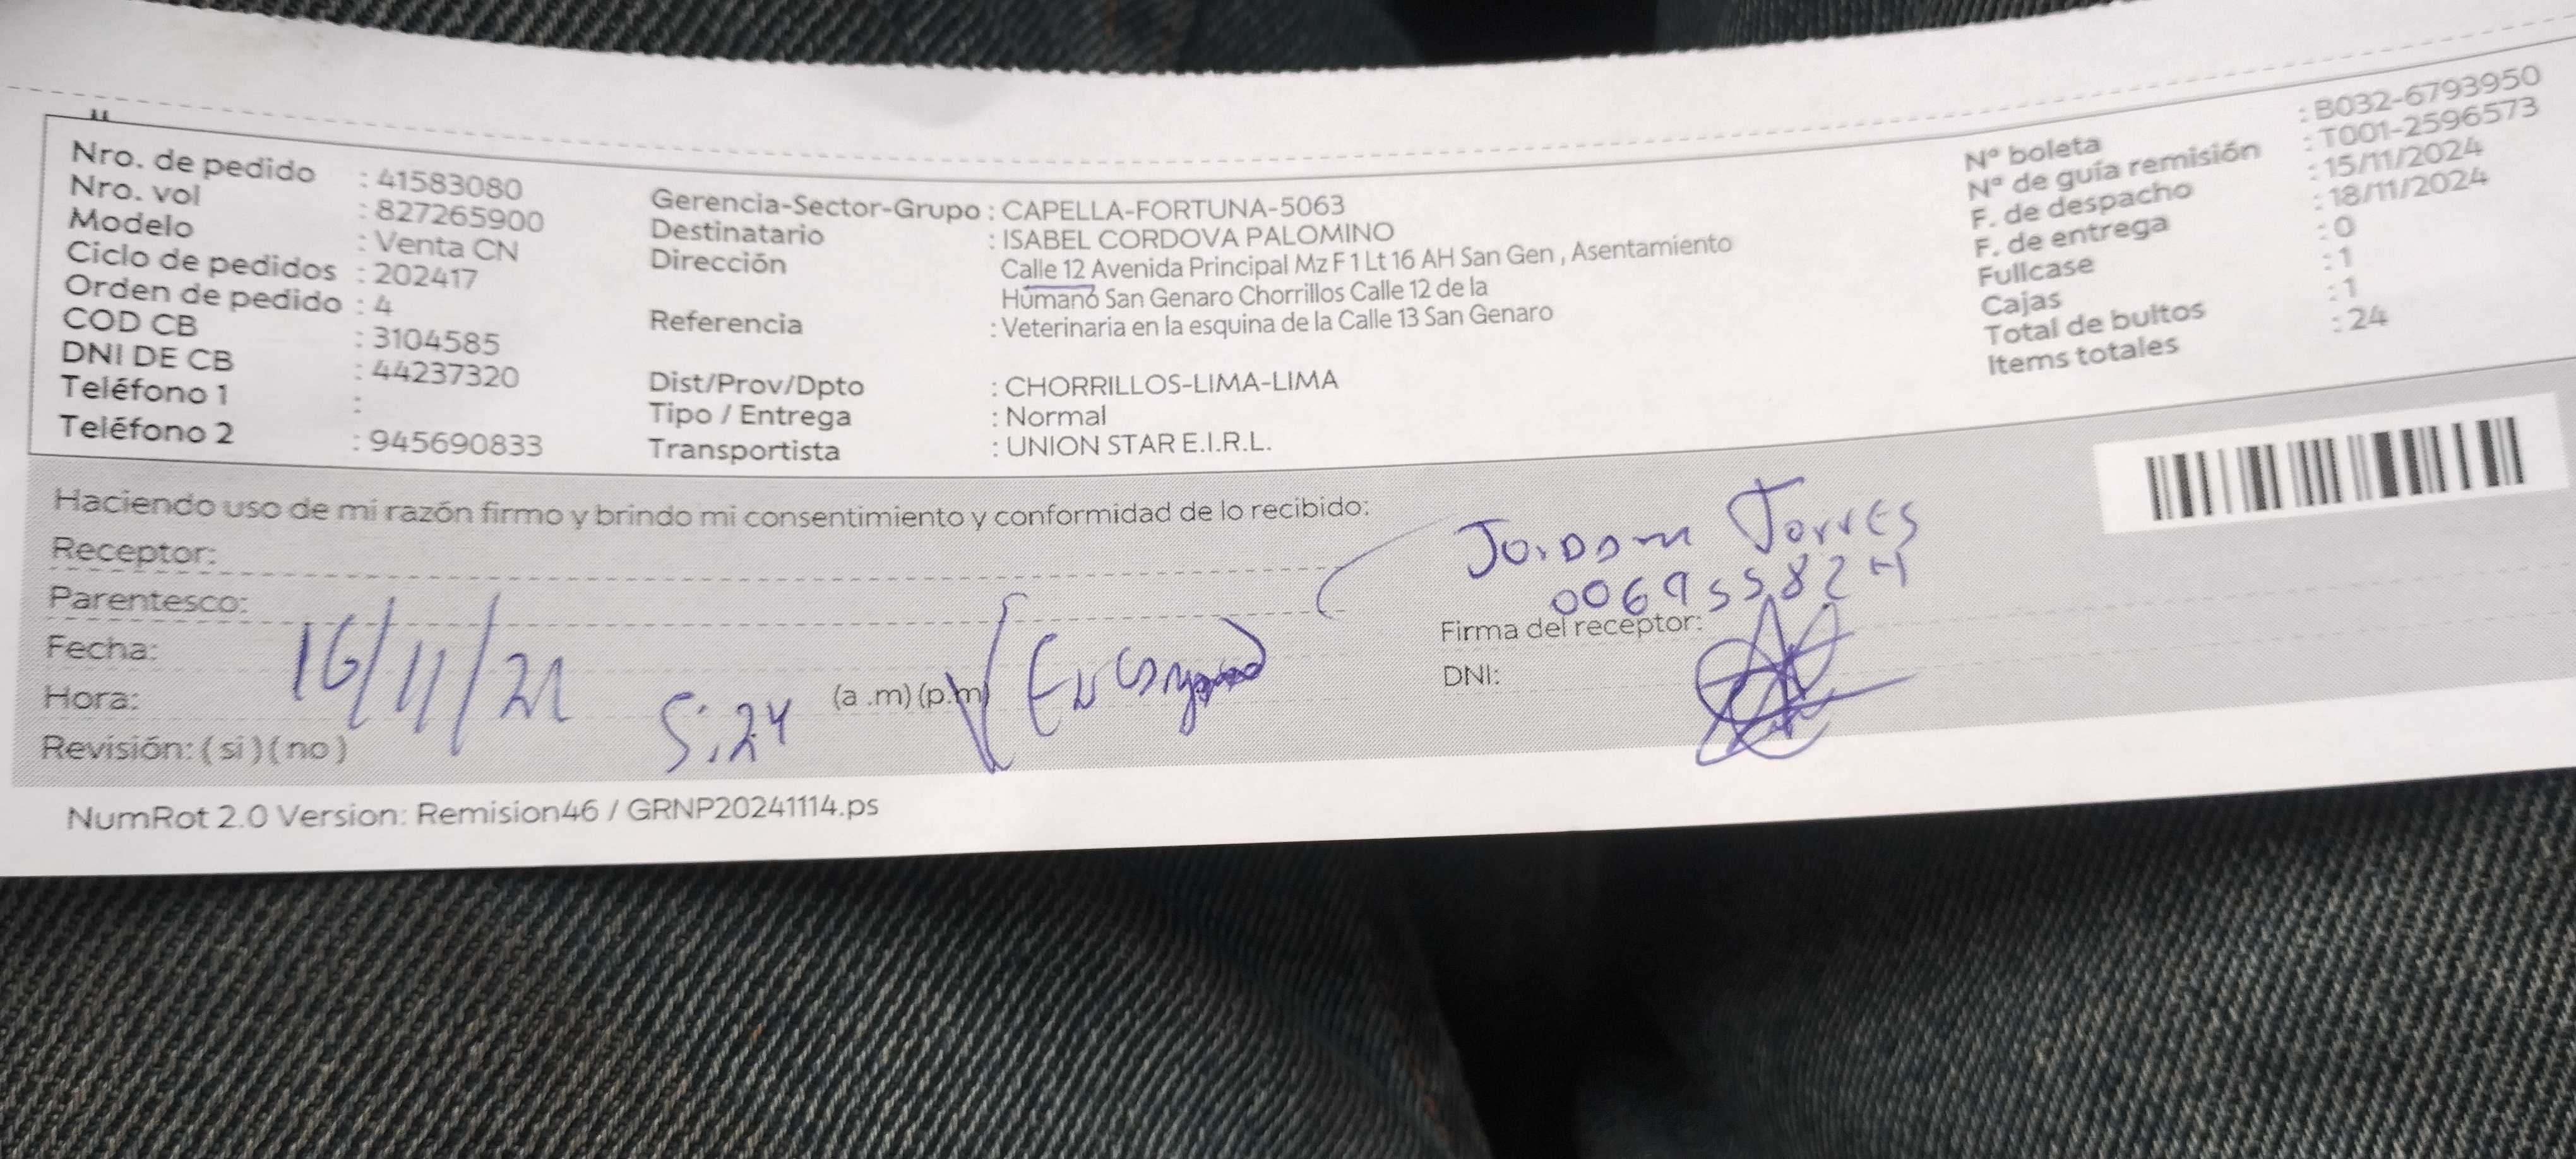 Nro. de pedido : 41583080
Nro. vol : 827265900
Modelo : Venta CN
Ciclo de pedidos : 202417
Orden de pedido : 4
COD CB : 3104585
DNI DE CB : 44237320
Teléfono 1 :
Teléfono 2 : 945690833
Gerencia-Sector-Grupo : CAPELLA-FORTUNA-5063
Destinatario : ISABEL CORDOVA PALOMINO
Dirección Calle 12 Avenida Principal Mz F 1 Lt 16 AH San Gen , Asentamiento
Humano San Genaro Chorrillos Calle 12 de la
Referencia : Veterinaria en la esquina de la Calle 13 San Genaro
Dist/Prov/Dpto : CHORRILLOS-LIMA-LIMA
Tipo / Entrega : Normal
Transportista : UNION STAR E.I.R.L.
Nº boleta : B032-6793950
Nº de guía remisión : T001-2596573
F. de despacho : 15/11/2024
F. de entrega : 18/11/2024
Fullcase : 0
Cajas : 1
Total de bultos : 1
Items totales : 24
Haciendo uso de mi razón firmo y brindo mi consentimiento y conformidad de lo recibido:
Receptor:
Parentesco:
Fecha: 16/11/21
Hora: 5:24 (a .m) (p.m)
Revisión: ( si ) ( no )
Torres
Firma del receptor:
DNI:
NumRot 2.0 Version: Remision46 / GRNP20241114.ps